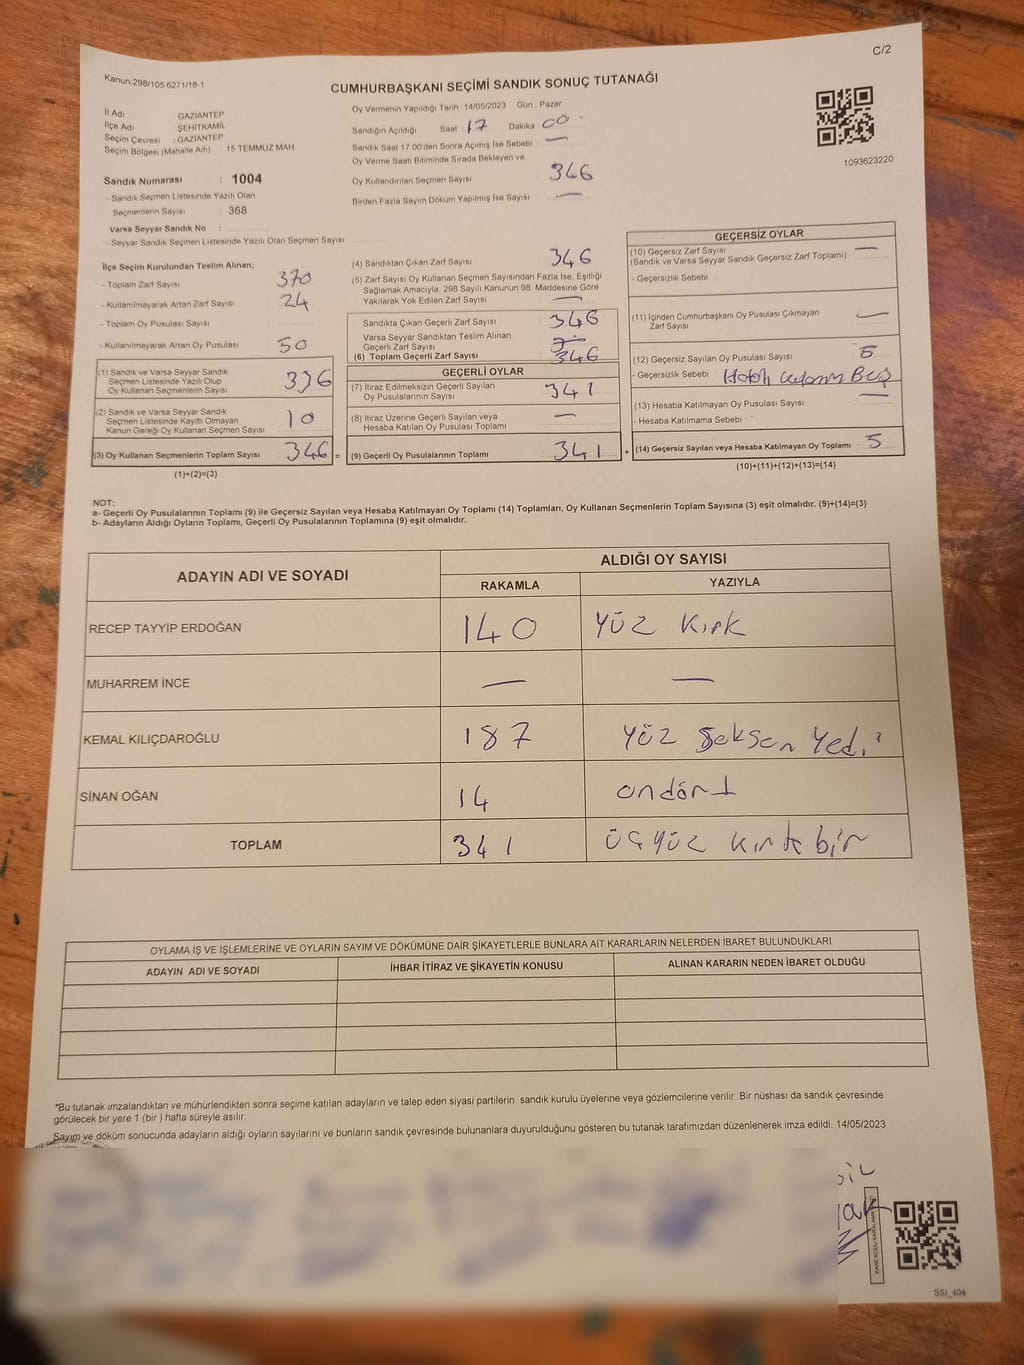 C/2
Kanun:298/105:6271/18-1
CUMHURBAŞKANI SEÇİMİ SANDIK SONUÇ TUTANAĞI
İl Adı GAZİANTEP
İlçe Adı ŞEHİTKAMİL
Seçim Çevresi : GAZİANTEP
Seçim Bölgesi (Mahalle Adı) : 15 TEMMUZ MAH
Oy Vermenin Yapıldığı Tarih : 14/05/2023 Gün : Pazar
Sandığın Açıldığı Saat : 17 Dakika 00
Sandık Saat 17.00'den Sonra Açımış İse Sebebi —
Oy Verme Saati Bitiminde Sırada Bekleyen ve
Oy Kullandırılan Seçmen Sayısı 346
Birden Fazla Sayım Döküm Yapılmış İse Sayısı —
1093623220
Sandık Numarası : 1004
- Sandık Seçmen Listesinde Yazılı Olan
Seçmenlerin Sayısı : 368
Varsa Seyyar Sandık No :
- Seyyar Sandık Seçmen Listesinde Yazılı Olan Seçmen Sayısı
İlçe Seçim Kurulundan Teslim Alınan;
- Toplam Zarf Sayısı 370
- Kullanılmayarak Artan Zarf Sayısı 24
- Toplam Oy Pusulası Sayısı :
- Kullanılmayarak Artan Oy Pusulası 50
(1) Sandık ve Varsa Seyyar Sandık
Seçmen Listesinde Yazılı Olup
Oy Kullanan Seçmenlerin Sayısı 336
(2) Sandık ve Varsa Seyyar Sandık
Seçmen Listesinde Kayıtlı Olmayan
Kanun Gereği Oy Kullanan Seçmen Sayısı 10
(3) Oy Kullanan Seçmenlerin Toplam Sayısı 346 =
(1)+(2)=(3)
(4) Sandıktan Çıkan Zarf Sayısı 346
(5) Zarf Sayısı Oy Kullanan Seçmen Sayısından Fazla İse, Eşitliği
Sağlamak Amacıyla, 298 Sayılı Kanunun 98. Maddesine Göre
Yakılarak Yok Edilen Zarf Sayısı —
Sandıkta Çıkan Geçerli Zarf Sayısı 346
Varsa Seyyar Sandıktan Teslim Alınan
Geçerli Zarf Sayısı
(6) Toplam Geçerli Zarf Sayısı 346
GEÇERLİ OYLAR
(7) İtiraz Edilmeksizin Geçerli Sayılan
Oy Pusulalarının Sayısı 341
(8) İtiraz Üzerine Geçerli Sayılan veya
Hesaba Katılan Oy Pusulası Toplamı —
(9) Geçerli Oy Pusulalarının Toplamı 341 +
GEÇERSİZ OYLAR
(10) Geçersiz Zarf Sayısı —
(Sandık ve Varsa Seyyar Sandık Geçersiz Zarf Toplamı)
- Geçersizlik Sebebi
(11) İçinden Cumhurbaşkanı Oy Pusulası Çıkmayan
Zarf Sayısı —
(12) Geçersiz Sayılan Oy Pusulası Sayısı 5
- Geçersizlik Sebebi
(13) Hesaba Katılmayan Oy Pusulası Sayısı —
- Hesaba Katılmama Sebebi
(14) Geçersiz Sayılan veya Hesaba Katılmayan Oy Toplamı 5
(10)+(11)+(12)+(13)=(14)
NOT:
a- Geçerli Oy Pusulalarının Toplamı (9) ile Geçersiz Sayılan veya Hesaba Katılmayan Oy Toplamı (14) Toplamları, Oy Kullanan Seçmenlerin Toplam Sayısına (3) eşit olmalıdır. (9)+(14)=(3)
b- Adayların Aldığı Oyların Toplamı, Geçerli Oy Pusulalarının Toplamına (9) eşit olmalıdır.
ADAYIN ADI VE SOYADI
ALDIĞI OY SAYISI
RAKAMLA YAZIYLA
RECEP TAYYİP ERDOĞAN 140 Yüz Kırk
MUHARREM İNCE — —
KEMAL KILIÇDAROĞLU 187 Yüz Seksen Yedi
SİNAN OĞAN 14 ondört
TOPLAM 341 üçyüz kırk bir
OYLAMA İŞ VE İŞLEMLERİNE VE OYLARIN SAYIM VE DÖKÜMÜNE DAİR ŞİKAYETLERLE BUNLARA AİT KARARLARIN NELERDEN İBARET BULUNDUKLARI
ADAYIN ADI VE SOYADI İHBAR İTİRAZ VE ŞİKAYETİN KONUSU ALINAN KARARIN NEDEN İBARET OLDUĞU
*Bu tutanak imzalandıktan ve mühürlendikten sonra seçime katılan adayların ve talep eden siyasi partilerin sandık kurulu üyelerine veya gözlemcilerine verilir. Bir nüshası da sandık çevresinde
görülecek bir yere 1 (bir) hafta süreyle asılır.
Sayım ve döküm sonucunda adayların aldığı oyların sayılarını ve bunların sandık çevresinde bulunanlara duyurulduğunu gösteren bu tutanak tarafımızdan düzenlenerek imza edildi. 14/05/2023
SSI_404